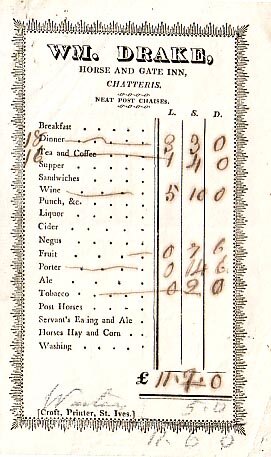 WM. DRAKE,
HORSE AND GATE INN,
CHATTERIS.
NEAT POST CHAISES.
L. S. D.
Breakfast
18 Dinner 3 3 0
16 Tea and Coffee 1 4 0
Supper
Sandwiches
Wine 5 10 0
Punch, &c.
Liquor
Cider
Negus
Fruit 0 7 6
Porter 0 14 6
Ale
Tobacco 0 2 0
Post Horses
Servant's Eating and Ale
Horses Hay and Corn
Washing
£ 11.1.0
5.0
[Croft, Printer, St. Ives.]
11.6.0